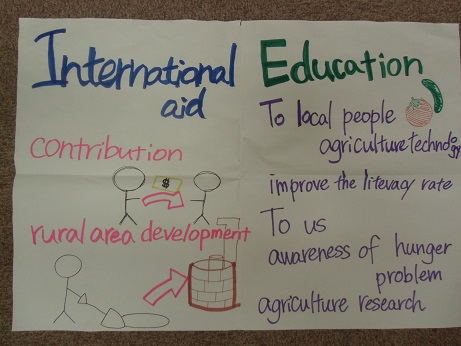 International
aid
contribution
$
rural area development
Education
To local people
agriculture technology
improve the literacy rate
To us
awareness of hunger
problem
agriculture research